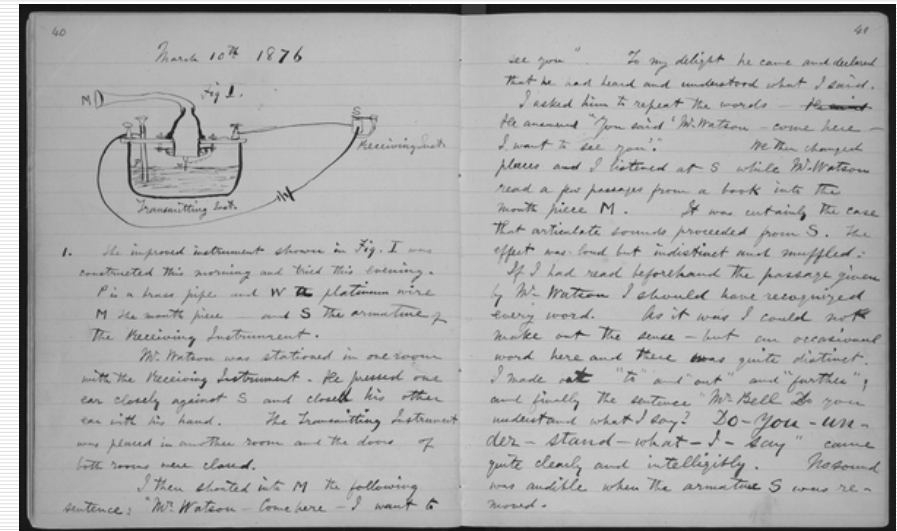 40
March 10th 1876
Fig I.
M
S
Receiving Inst.
P
W
Transmitting Inst.
1. The improved instrument shown in Fig. I was
constructed this morning and tried this evening.
P is a brass pipe and W the platinum wire
M the mouth piece and S the armature of
the Receiving Instrument.
Mr. Watson was stationed in one room
with the Receiving Instrument. He pressed one
ear closely against S and closed his other
ear with his hand. The Transmitting Instrument
was placed in another room and the doors of
both rooms were closed.
I then shouted into M the following
sentence: "Mr. Watson – Come here – I want to
41
see you". To my delight he came and declared
that he had heard and understood what I said.
I asked him to repeat the words – He said
He answered "You said 'Mr. Watson – come here –
I want to see you'." We then changed
places and I listened at S while Mr. Watson
read a few passages from a book into the
mouth piece M. It was certainly the case
that articulate sounds proceeded from S. The
effect was loud but indistinct and muffled.
If I had read beforehand the passage given
by Mr. Watson I should have recognized
every word. As it was I could not
make out the sense – but an occasional
word here and there was quite distinct.
I made out "to" and "out" and "further";
and finally the sentence "Mr. Bell Do you
understand what I say? Do – you – un –
der – stand – what – I – say" came
quite clearly and intelligibly. No sound
was audible when the armature S was re-
moved.